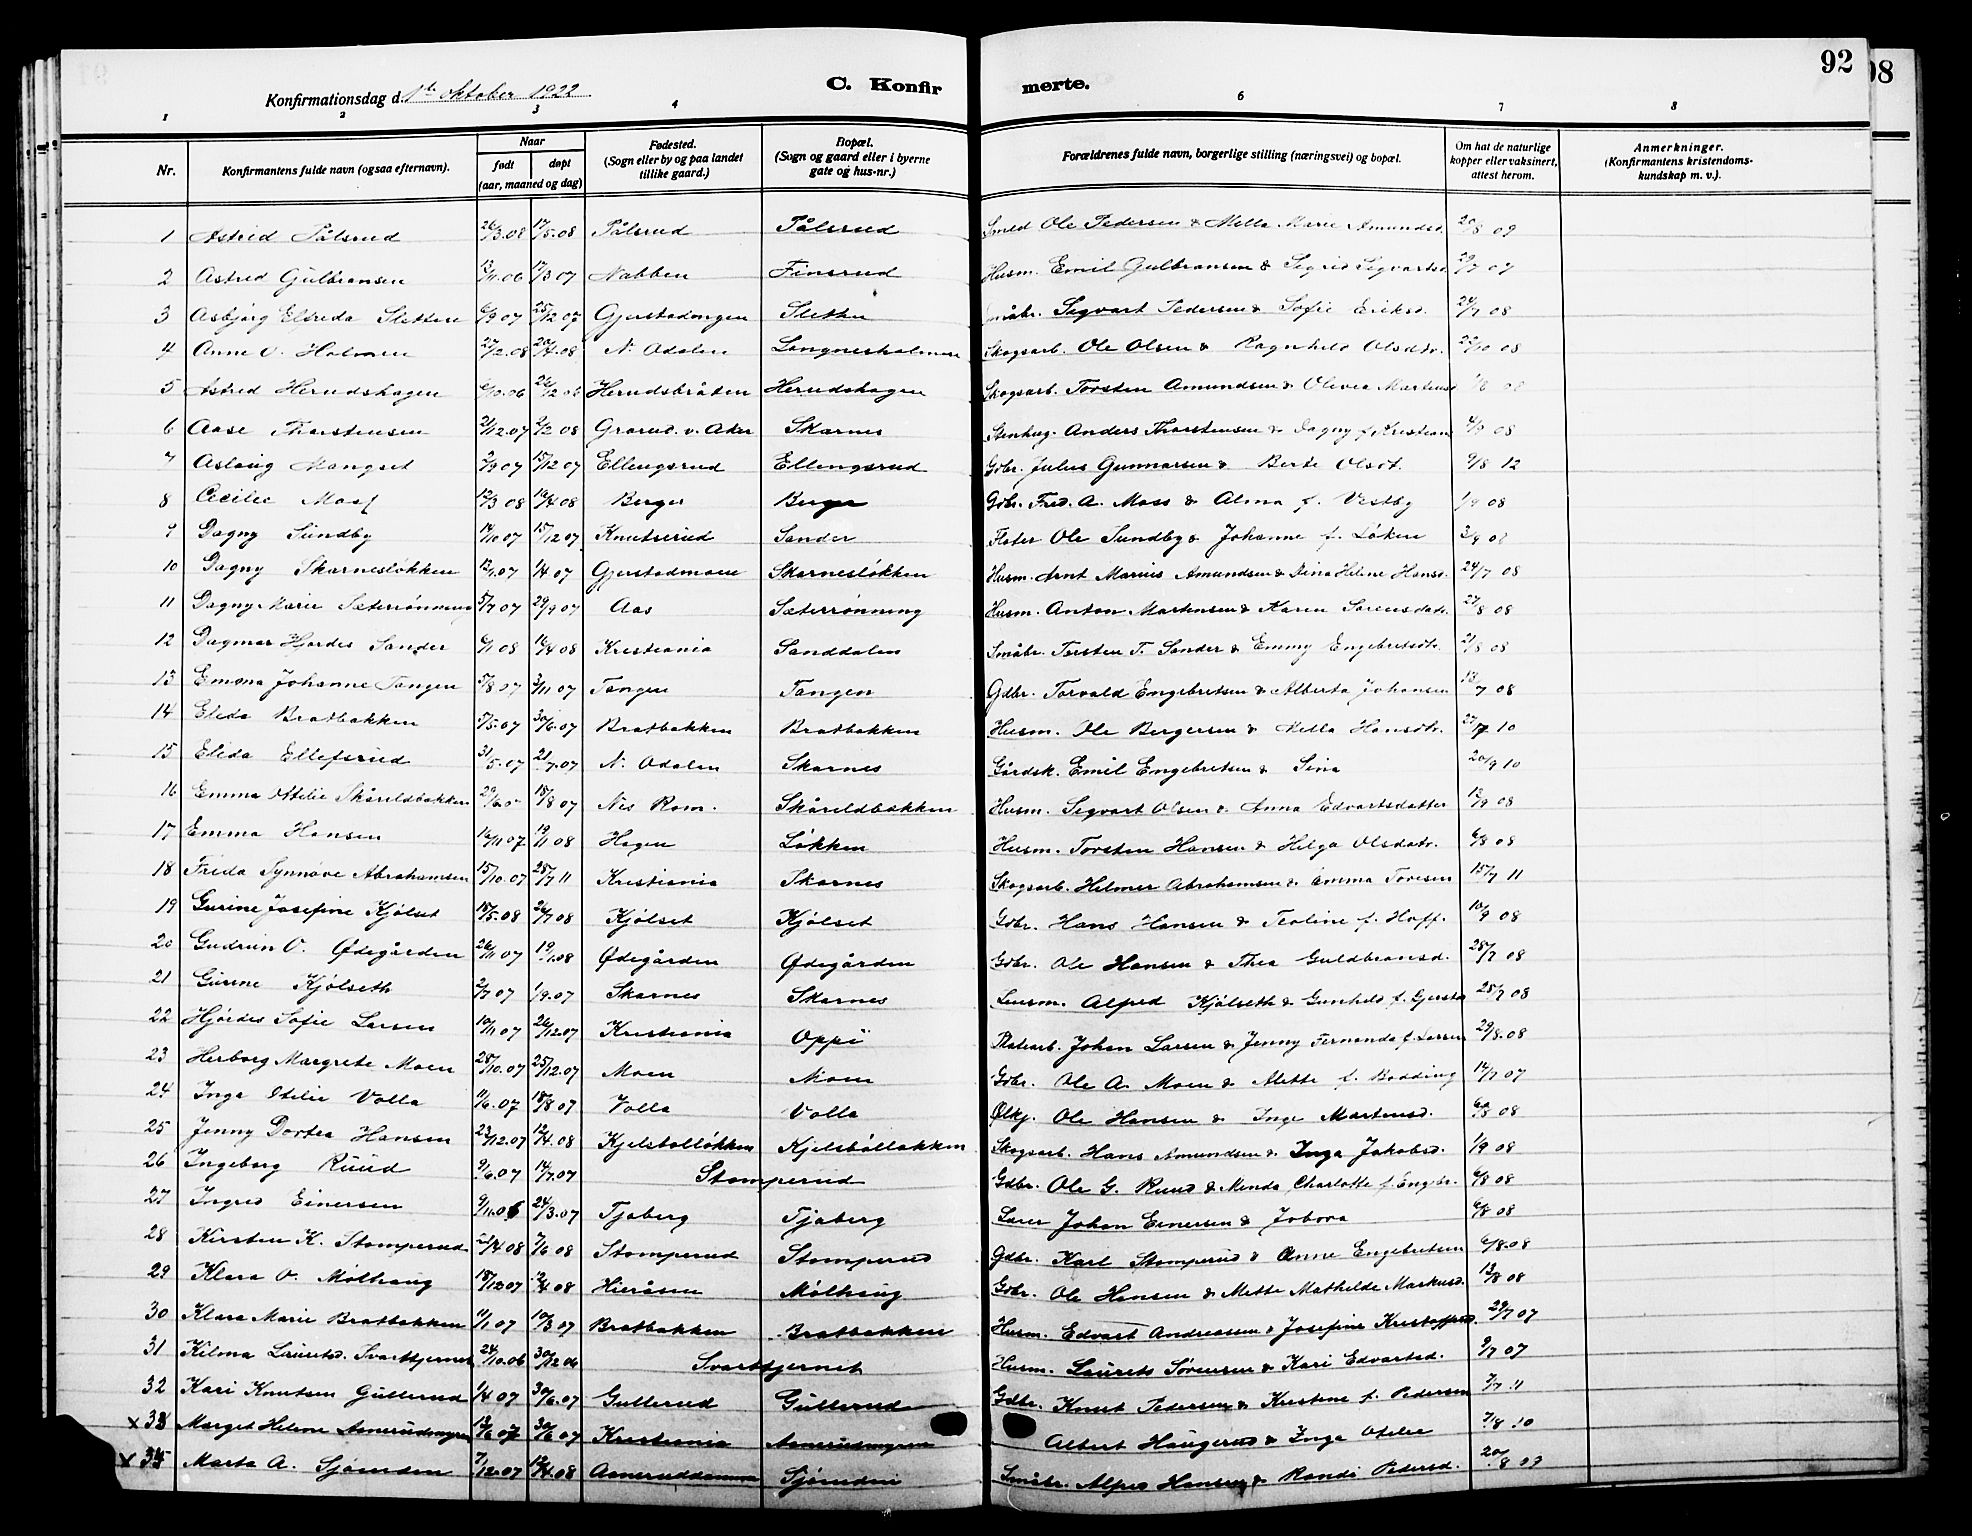 92
98
Konfirmationsdag d. 1ste oktober 1922. C. Konfir merte.
1 2 3 4 6 7 8
Nr. Konfirmantens fulde navn (ogsaa efternavn). Naar født døpt (aar, maaned og dag) Fødested. (Sogn eller by og paa landet tillike gaard.) Bopæl. (Sogn og gaard eller i byerne gate og hus-nr.) Forældrenes fulde navn, borgerlige stilling (næringsvei) og bopæl. Om hat de naturlige kopper eller vaksinert, attest herom. Anmerkninger. (Konfirmantens kristendoms-kundskap m. v.).
1 Astrid Pålsrud 26/3.08 17/5.08 Pålsrud Pålsrud Smed Ole Pedersen & Mella Marie Amundsd. 20/8 09
2 Astrid Gulbransen 13/11.06 17/3 07 Nabben Finsrud Husm. Emil Gulbransen & Sigrid Sigvartsd. 29/7 07
3 Asbjørg Elfrida Sletten 6/9 07 25/12 07 Gjerstadengen Sletten Småbr. Sigvart Pedersen & Sofie Eriksd. 24/7 08
4 Anne O. Holmen 27/2.08 20/4.08 N. Odalen Langnesholmen Skogsarb. Ole Olsen & Ragnhild Olsdtr. 22/10 08
5 Astrid Herudshagen 6/10.06 26/12 06 Herudsbråten Herudshagen Skogsarb. Torsten Amundsen & Olivia Martinsd 1/8 08
6 Aase Thorstensen 21/12.07 2/2 08 Grorud v. Aker Skarnes Stenhug. Anders Thorstensen & Dagny f. Kristians 4/9 08
7 Aslaug Mangset 2/9 07 15/12 07 Ellengsrud Ellengsrud Gdbr. Julius Gunnarsen & Berte Olsdt. 9/8 12
8 Cecilie Moss 12/3 08 16/4 08 Berger Berger Gdbr. Fred. A. Moss & Alma f. Vestby 1/9 08
9 Dagny Sundby 14/10 07 15/12 07 Knutsrud Sander Fløter Ole Sundby & Johanne f. Løken 3/9 08
10 Dagny Skarnesløkken 12/1.07 1/4 07 Gjerstadmoen Skarnesløkken Husm. Arnt Marius Amundsen & Dina Helene Hansd. 24/7 08
11 Dagny Marie Sæterrønning 5/7 07 29/9 07 Aas Sæterrønning Husm. Anton Martensen & Karen Sørensdatr. 27/8 08
12 Dagmar Hjørdis Sander 6/1 08 16/4 08 Kristiania Sanddalen Småbr. Torsten T. Sander & Emmy Engebretsdtr. 21/8 08
13 Emma Johanne Tangen 5/8 07 3/11 07 Tangen Tangen Gdbr. Torvald Engebretsen & Alberta Johansen 18/7 08
14 Elida Bratbakken 7/5.07 30/6.07 Bratbakken Bratbakken Husm. Ole Bergersen & Mella Hansdtr. 27/7 10
15 Elida Ellefsrud 31/5.07 21/7.07 N. Odalen Skarnes Gårdsk. Emil Engebretsen & Sina 20/9 10
16 Emma Otilie Skåreldbakken 18/8 07 Nes Rom. Skåreldbakken Husm. Sigvart Olsen & Anna Edvartsdatter 12/9 08
17 Emma Hansen 16/11 07 19/1 08 Hagen Løkken Husm. Torsten Hansen & Helga Olsdatr. 6/8 08
18 Frida Synnøve Abrahamsen 15/10.07 28/7 11 Kristiania Skarnes Skogsarb. Helmer Abrahamsen & Emma Toresen 15/7 11
19 Gurine Josefine Kjølset 18/5.08 26/7 08 Kjølset Kjølset Gdbr. Hans Hansen & Teoline f. Hoff. 10/9 08
20 Gudrun O. Ødegården 26/11 07 19/1.08 Ødegården Ødegården Gdbr. Ole Hansen & Thea Guldbransd. 28/7 08
21 Gurine Kjølseth 2/7 07 1/9.07 Skarnes Skarnes Lensm. Alfred Kjølseth & Gunhild f. Gjersta 28/7 08
22 Hjørdis Sofie Larsen 10/11 07 26/12.07 Kristiania Oppi Platearb. Johan Larsen & Jenny Fernanda f. Larsen 29/8.08
23 Herborg Margrete Moen 28/10.07 25/12.07 Moen Moen Gdbr. Ole A. Moen & Mette f. Bodding 17/7 07
24 Inga Otilie Volla 11/6.07 18/8 07 Volla Volla Ølkj. Ole Hansen & Inge Martinsd. 6/8 08
25 Jenny Dortea Hansen 23/12.07 12/4.08 Kjelsbolløkken Kjelsbølløkken Skogsarb. Hans Amundsen & Inga Jakobsd. 1/9 08
26 Ingeborg Ruud 9/6.07 14/7.07 Stomperud Gdbr. Ole G. Ruud & Minda Charlotte f. Engbr. 6/8 08
27 Ingrid Einersen 9/11.06 24/3.07 Tjaberg Tjaberg Lærer Johan Einersen & Jobora 6/8 08
28 Kirsten K. Stomperud 21/4 08 7/6 08 Stomperud Stomperud Gdbr. Karl Stomperud & Anne Engebretsen 6/8.08
29 Klara O. Mølhaug 18/12 07 12/4 08 Hieråsen Mølhaug Gdbr. Ole Hansen & Mette Mathilde Markusd. 13/8 08
30 Klara Marie Bratbakken 11/1 07 10/3 07 Bratbakken Bratbakken Husm. Edvart Andreassen & Josefine Kristoffersd 29/7 07
31 Kilma Lauritsd. Svarttjernet 24/10.06 30/12 06 Svarttjernet Husm. Laurets Sørensen & Kari Edvartsd. 9/7 07
32 Kari Knutsen Gullerud 1/4 07 30/6.07 Gullerud Gullerud Gdbr. Knut Pedersen & Kristine f. Pedersen 7/7 11
x 33 Margit Helene Asnerudmyren 13/6 07 30/6 07 Kristiania Asnerudmyren Albert Haugerud & Inga Otelie 7/8 10
x 35 Marta A. Sjøenden 7/12.07 12/4.08 Asneruddammen Sjøenden Småbr. Alfred Hansen & Randi Pedersd. 20/8 09